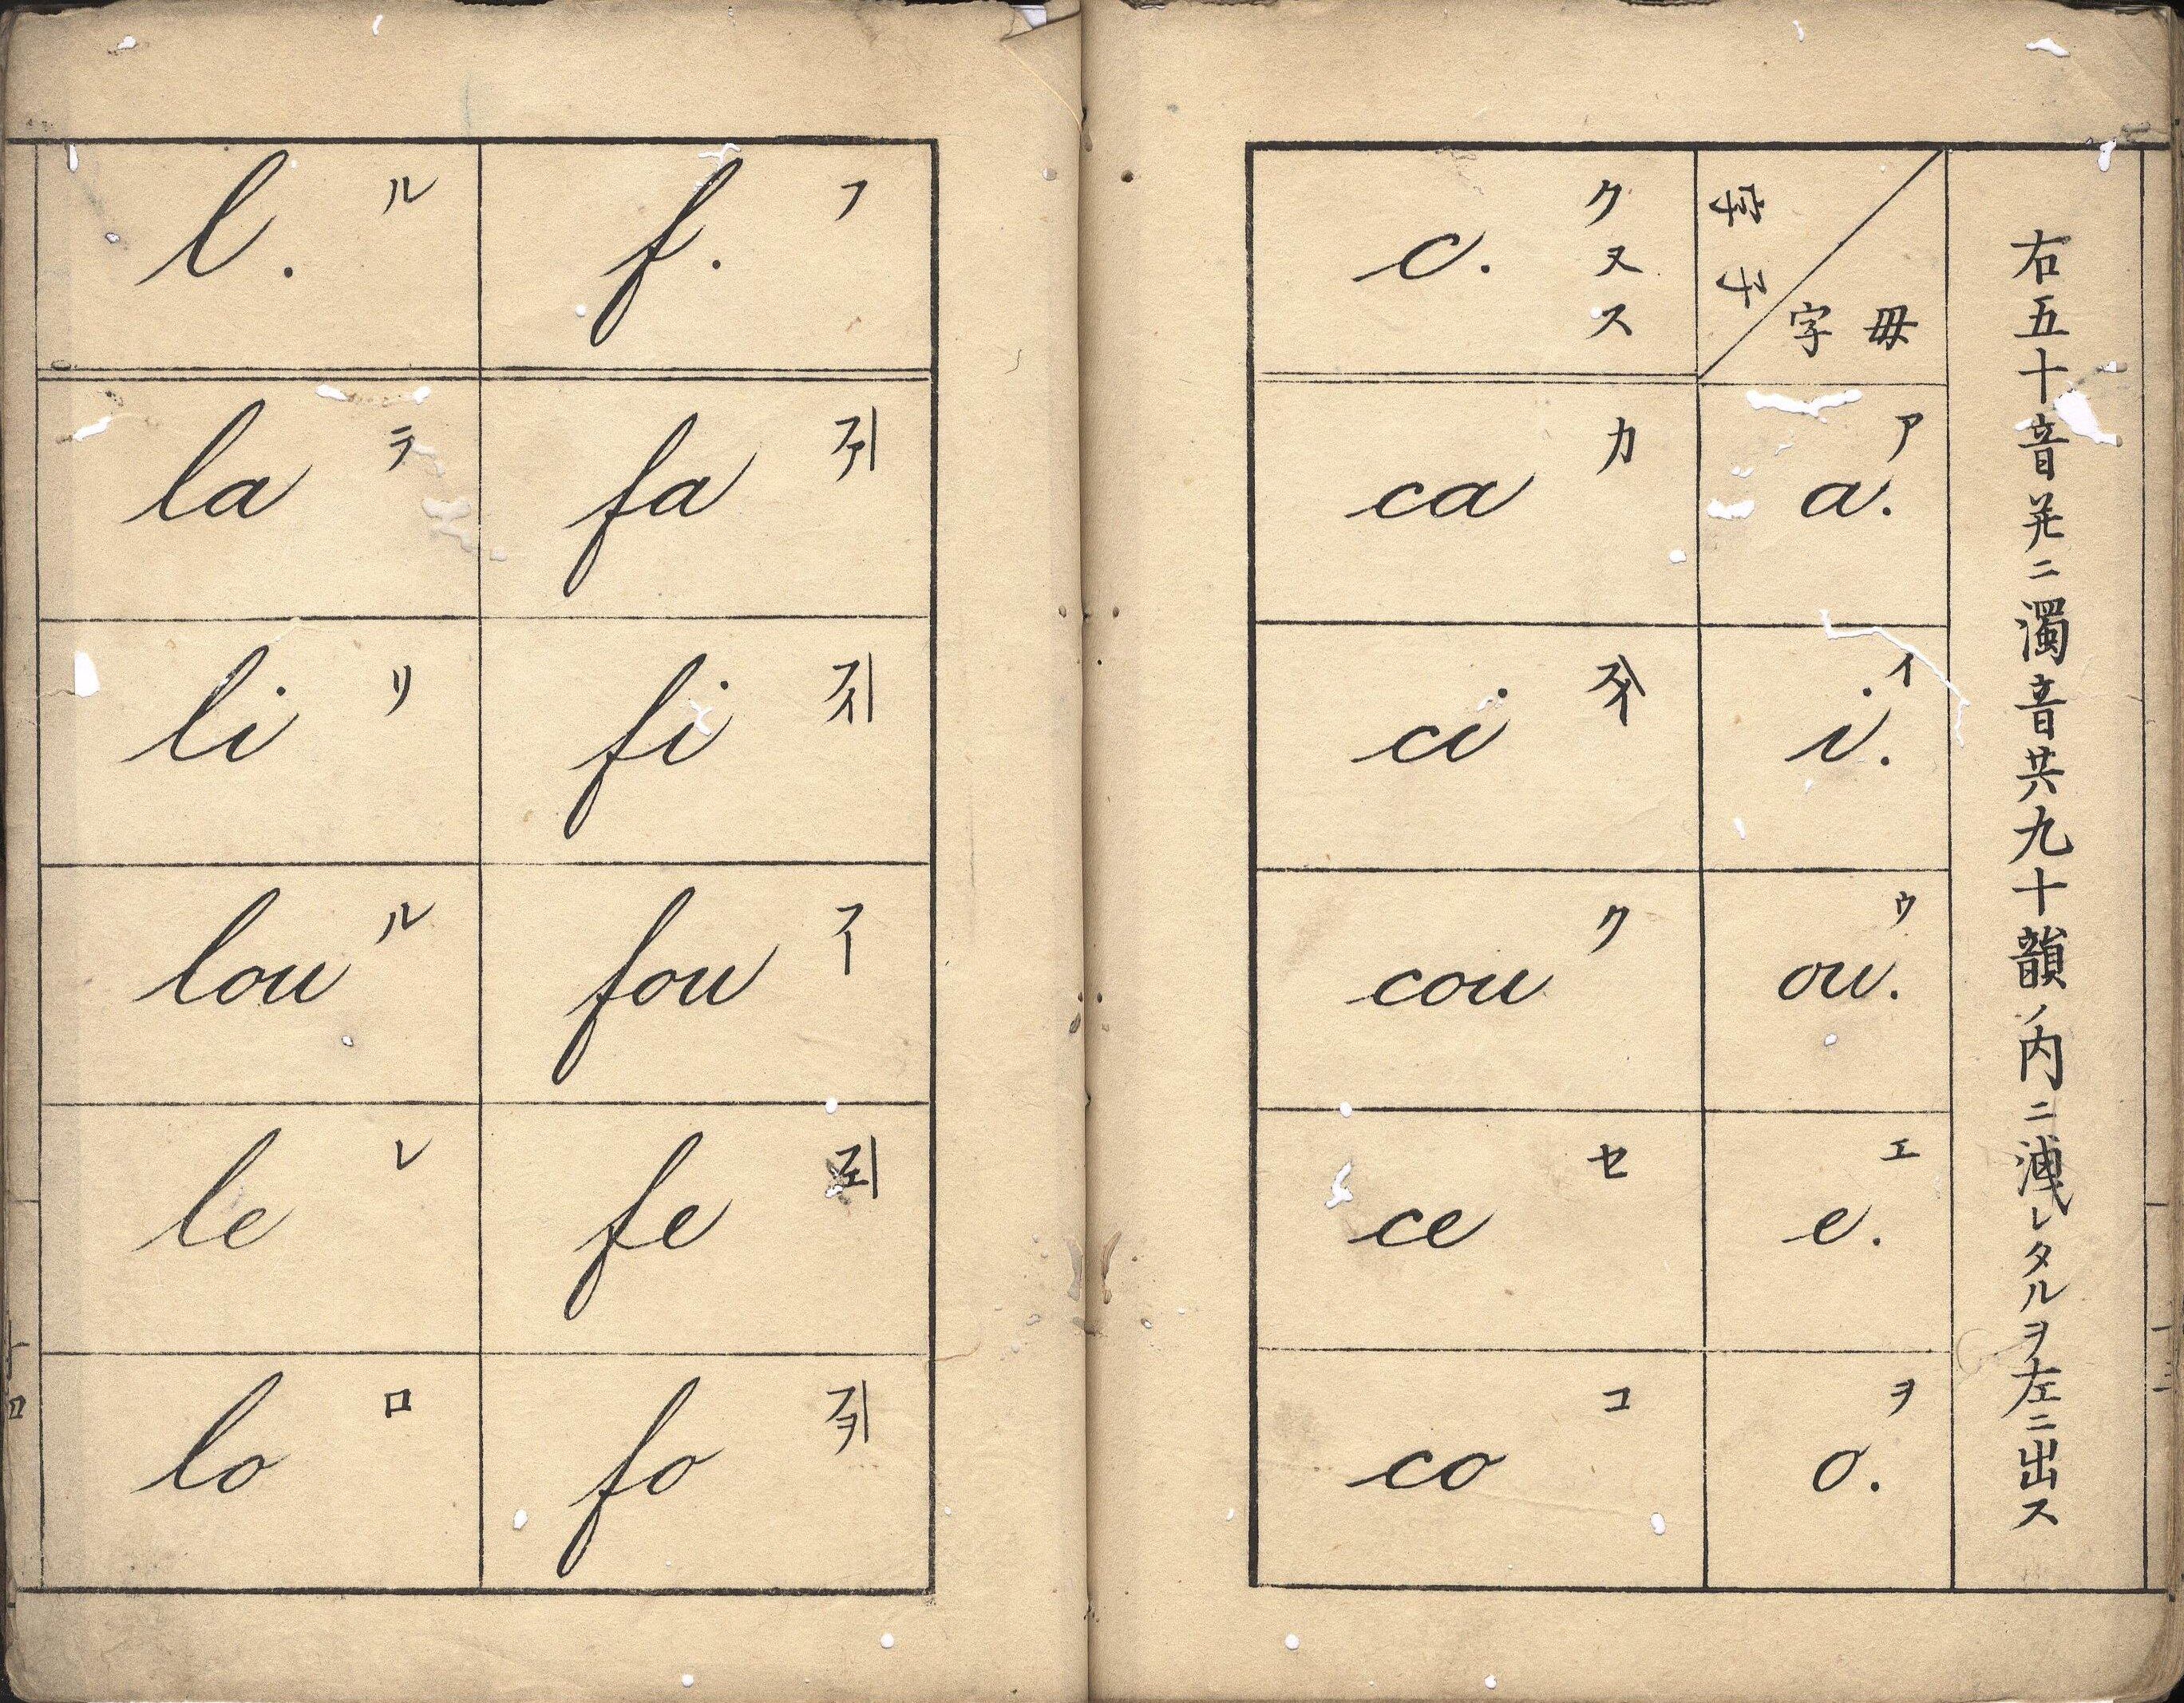 右五十音并ニ濁音共九十韻ノ内ニ洩レタルヲ左ニ出ス
母字
子字
ア a.
イ i.
ウ ou.
エ e.
ヲ o.
ク又ス c.
カ ca
スイ ci
ク cou
セ ce
コ co
フ f.
フア fa
フイ fi
フー fou
フエ fe
フヲ fo
ル l.
ラ la
リ li
ル lou
レ le
ロ lo